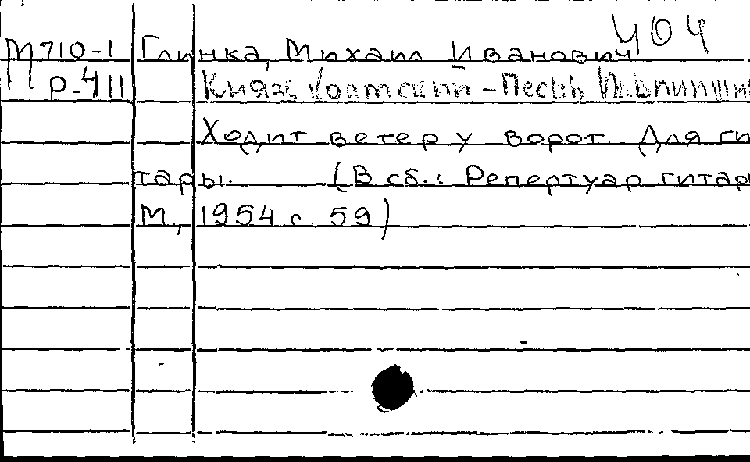 404
М710-1 Глинка, Михаил Иванович
Р-411 Князь Холмский - Песнь Ильинишны
Ходит ветер у ворот. Для ги
тары. (В сб.: Репертуар гитар
М, 1954 с 59)